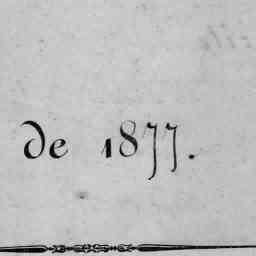 de 1877.